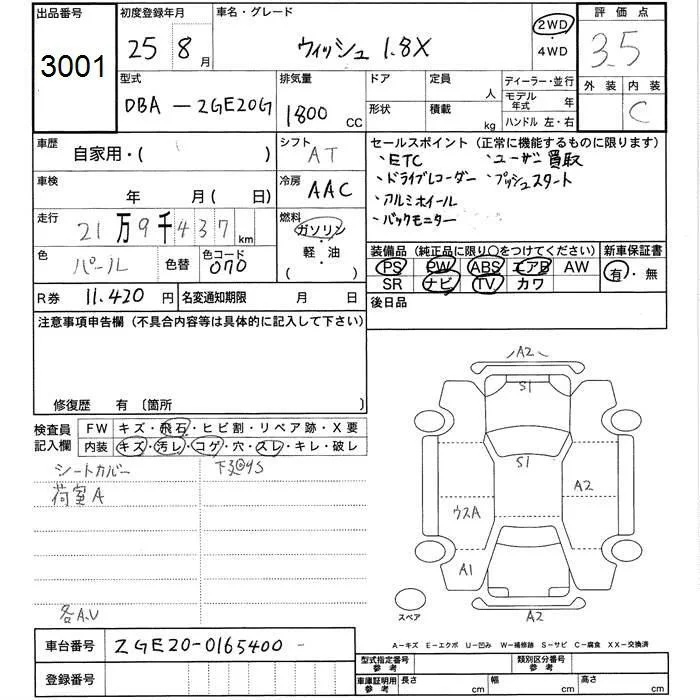 出品番号
3001
初度登録年月
25 8 月
車名・グレード
ウィッシュ 1.8X
2WD
・
4WD
評価点
3.5
外装 内装
C
型式
DBA-ZGE20G
排気量
1800 CC
ドア
形状
定員
人
積載
kg
ディーラー・並行
モデル年式 年
ハンドル 左・右
車歴
自家用・( )
シフト
AT
車検
年 月( 日)
冷房
AAC
走行
21万9千437 km
燃料
ガソリン
軽・油
( )
色
パール
色替
色コード
070
R券 11.420 円
名変通知期限 月 日
セールスポイント (正常に機能するものに限ります)
・ETC ・ユーザー買取
・ドライブレコーダー ・プッシュスタート
・アルミホイール
・バックモニター
装備品 (純正品に限り○をつけてください)
新車保証書
PS PW ABS エアB AW
SR ナビ TV カワ
有・無
後日品
注意事項申告欄 (不具合内容等は具体的に記入して下さい)
修復歴 有 〔箇所 〕
検査員
記入欄
FW キズ・飛石・ヒビ割・リペア跡・X要
内装 キズ・汚レ・コゲ・穴・スレ・キレ・破レ
シートカバー
荷室A
各A.U
A2
S1
S1
A2
ウスA
A1
A2
スペア
A-キズ E-エクボ U-凹み W-補修跡 S-サビ C-腐食 XX-交換済
車台番号 ZGE20-0165400
登録番号
型式指定番号
参考
類別区分番号
参考
車庫証明用
参考
長さ cm 幅 cm 高さ cm